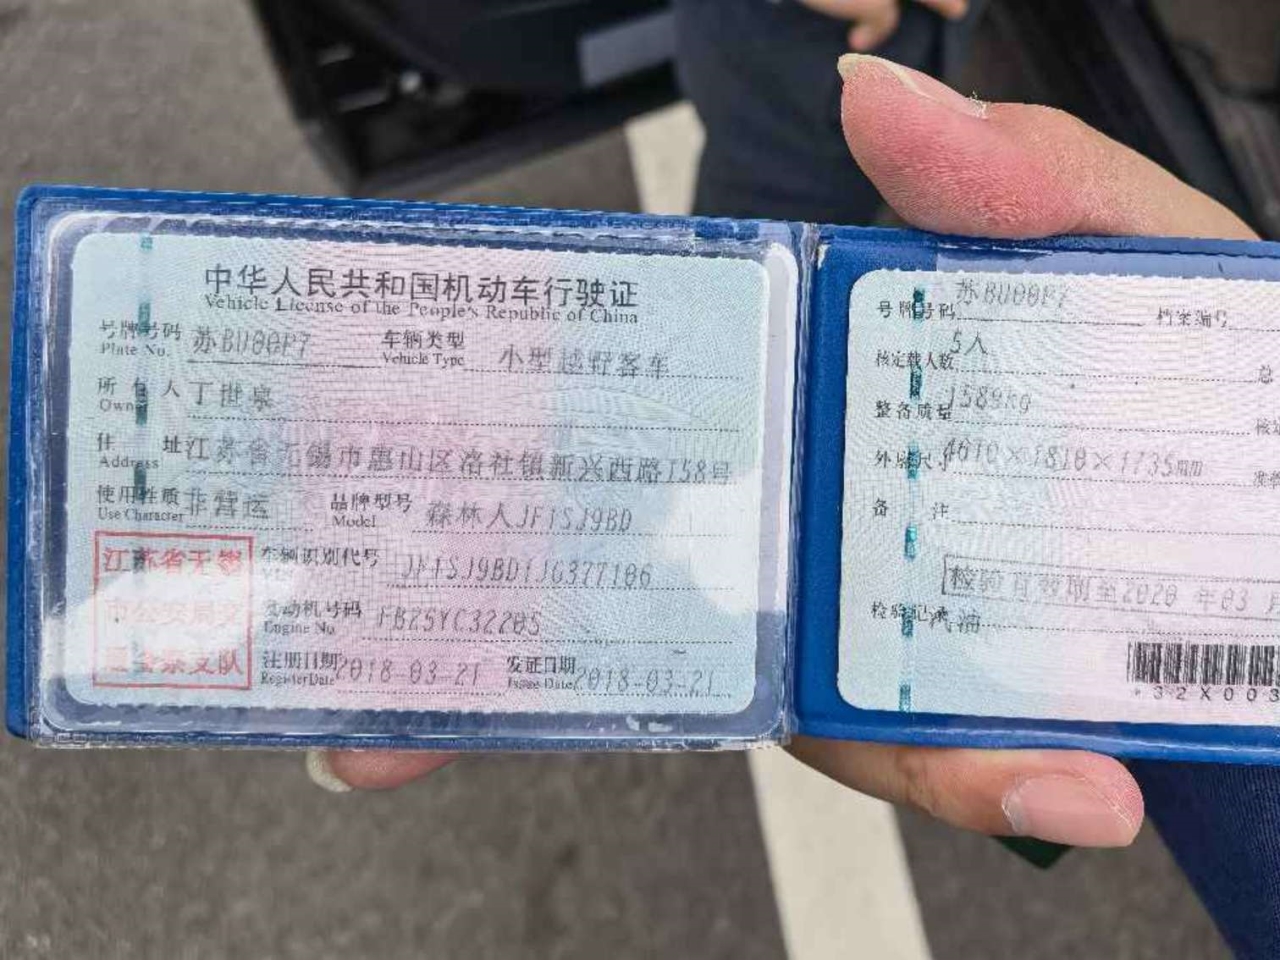 中华人民共和国机动车行驶证
Vehicle License of the People's Republic of China
号牌号码 苏BU00P7 车辆类型 小型越野客车
Plate No. Vehicle Type
所有人 丁世泉
Owner
住址 江苏省无锡市惠山区洛社镇新兴西路158号
Address
使用性质 非营运 品牌型号 森林人JF1SJ9BD
Use Character Model
江苏省无锡
市公安局交
通警察支队
车辆识别代号 JF1SJ9BD1JG377186
发动机号码 FB25YC32205
Engine No.
注册日期 2018-03-21 发证日期 2018-03-21
Register Date Issue Date
号牌号码 苏BU00P7 档案编号
核定载人数 5人 总
整备质量 1589kg 核定
外廓尺寸 4610×1810×1735mm 准牵
备注
检验有效期至2020年03月
检验记录 汽油
*32X003